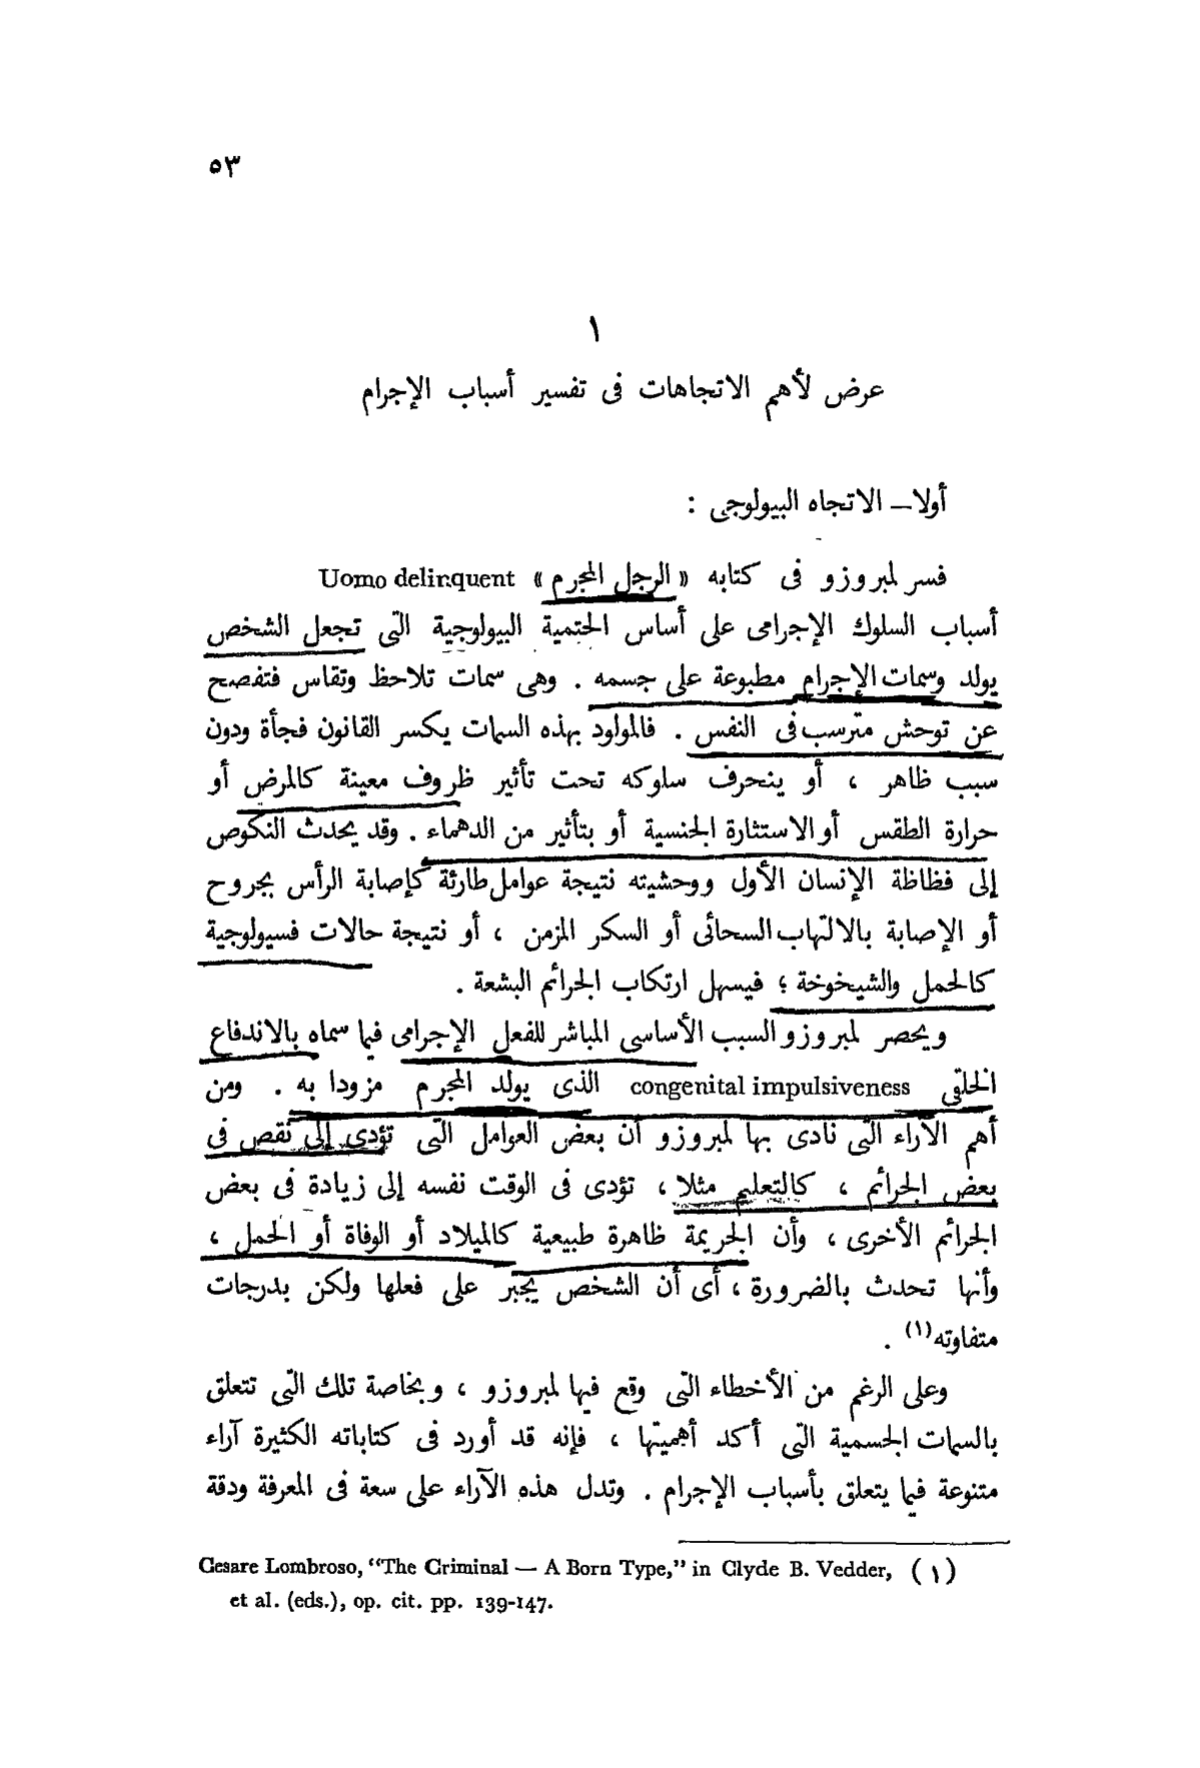 ٥٣
١
عرض لأهم الاتجاهات فى تفسير أسباب الإجرام
أولا — الاتجاه البيولوجى :
فسر لمبروزو فى كتابه « الرجل المجرم » Uomo delinquent
أسباب السلوك الإجرامى على أساس الحتمية البيولوجية التى تجعل الشخص
يولد وسمات الإجرام مطبوعة على جسمه . وهى سمات تلاحظ وتقاس فتفصح
عن توحش مترسب فى النفس . فالمولود بهذه السمات يكسر القانون فجأة ودون
سبب ظاهر ، أو ينحرف سلوكه تحت تأثير ظروف معينة كالمرض أو
حرارة الطقس أو الاستثارة الجنسية أو بتأثير من الدهماء . وقد يحدث النكوص
إلى فظاظة الإنسان الأول ووحشيته نتيجة عوامل طارئة كإصابة الرأس بجروح
أو الإصابة بالالتهاب السحائى أو السكر المزمن ، أو نتيجة حالات فسيولوجية
كالحمل والشيخوخة ؛ فيسهل ارتكاب الجرائم البشعة .
ويحصر لمبروزو السبب الأساسى المباشر للفعل الإجرامى فيما سماه بالاندفاع
الخلقى congenital impulsiveness الذى يولد المجرم مزودا به . ومن
أهم الآراء التى نادى بها لمبروزو أن بعض العوامل التى تؤدى إلى نقص فى
بعض الجرائم ، كالتعليم مثلا ، تؤدى فى الوقت نفسه إلى زيادة فى بعض
الجرائم الأخرى ، وأن الجريمة ظاهرة طبيعية كالميلاد أو الوفاة أو الحمل ،
وأنها تحدث بالضرورة ، أى أن الشخص يجبر على فعلها ولكن بدرجات
متفاوته(١) .
وعلى الرغم من الأخطاء التى وقع فيها لمبروزو ، وبخاصة تلك التى تتعلق
بالسمات الجسمية التى أكد أهميتها ، فإنه قد أورد فى كتاباته الكثيرة آراء
متنوعة فيما يتعلق بأسباب الإجرام . وتدل هذه الآراء على سعة فى المعرفة ودقة
(١) Cesare Lombroso, “The Criminal — A Born Type,” in Clyde B. Vedder,
et al. (eds.), op. cit. pp. 139-147.